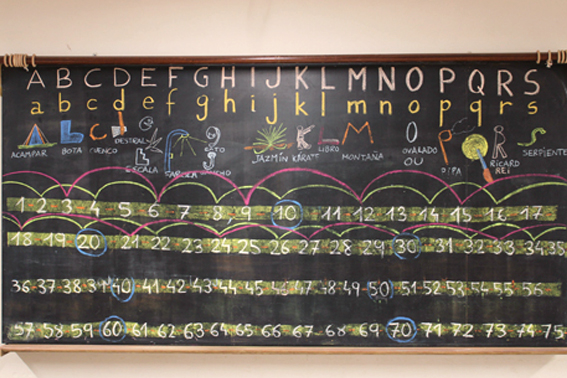 A B C D E F G H I J K L M N O P Q R S
a b c d e f g h i j k l m n o p q r s
DESTRAL LIBRO OVALADO RICARD SERPIENTE
ACAMPAR BOTA CUENCO JAZMÍN KÁRATE MONTAÑA OU PIPA REI
ESCALA FAROLA
1 2 3 4 5 6 7 8 9 10 11 12 13 14 15 16 17
18 19 20 21 22 23 24 25 26 27 28 29 30 31 32 33 34 35
36 37 38 39 40 41 42 43 44 45 46 47 48 49 50 51 52 53 54 55 56
57 58 59 60 61 62 63 64 65 66 67 68 69 70 71 72 73 74 75